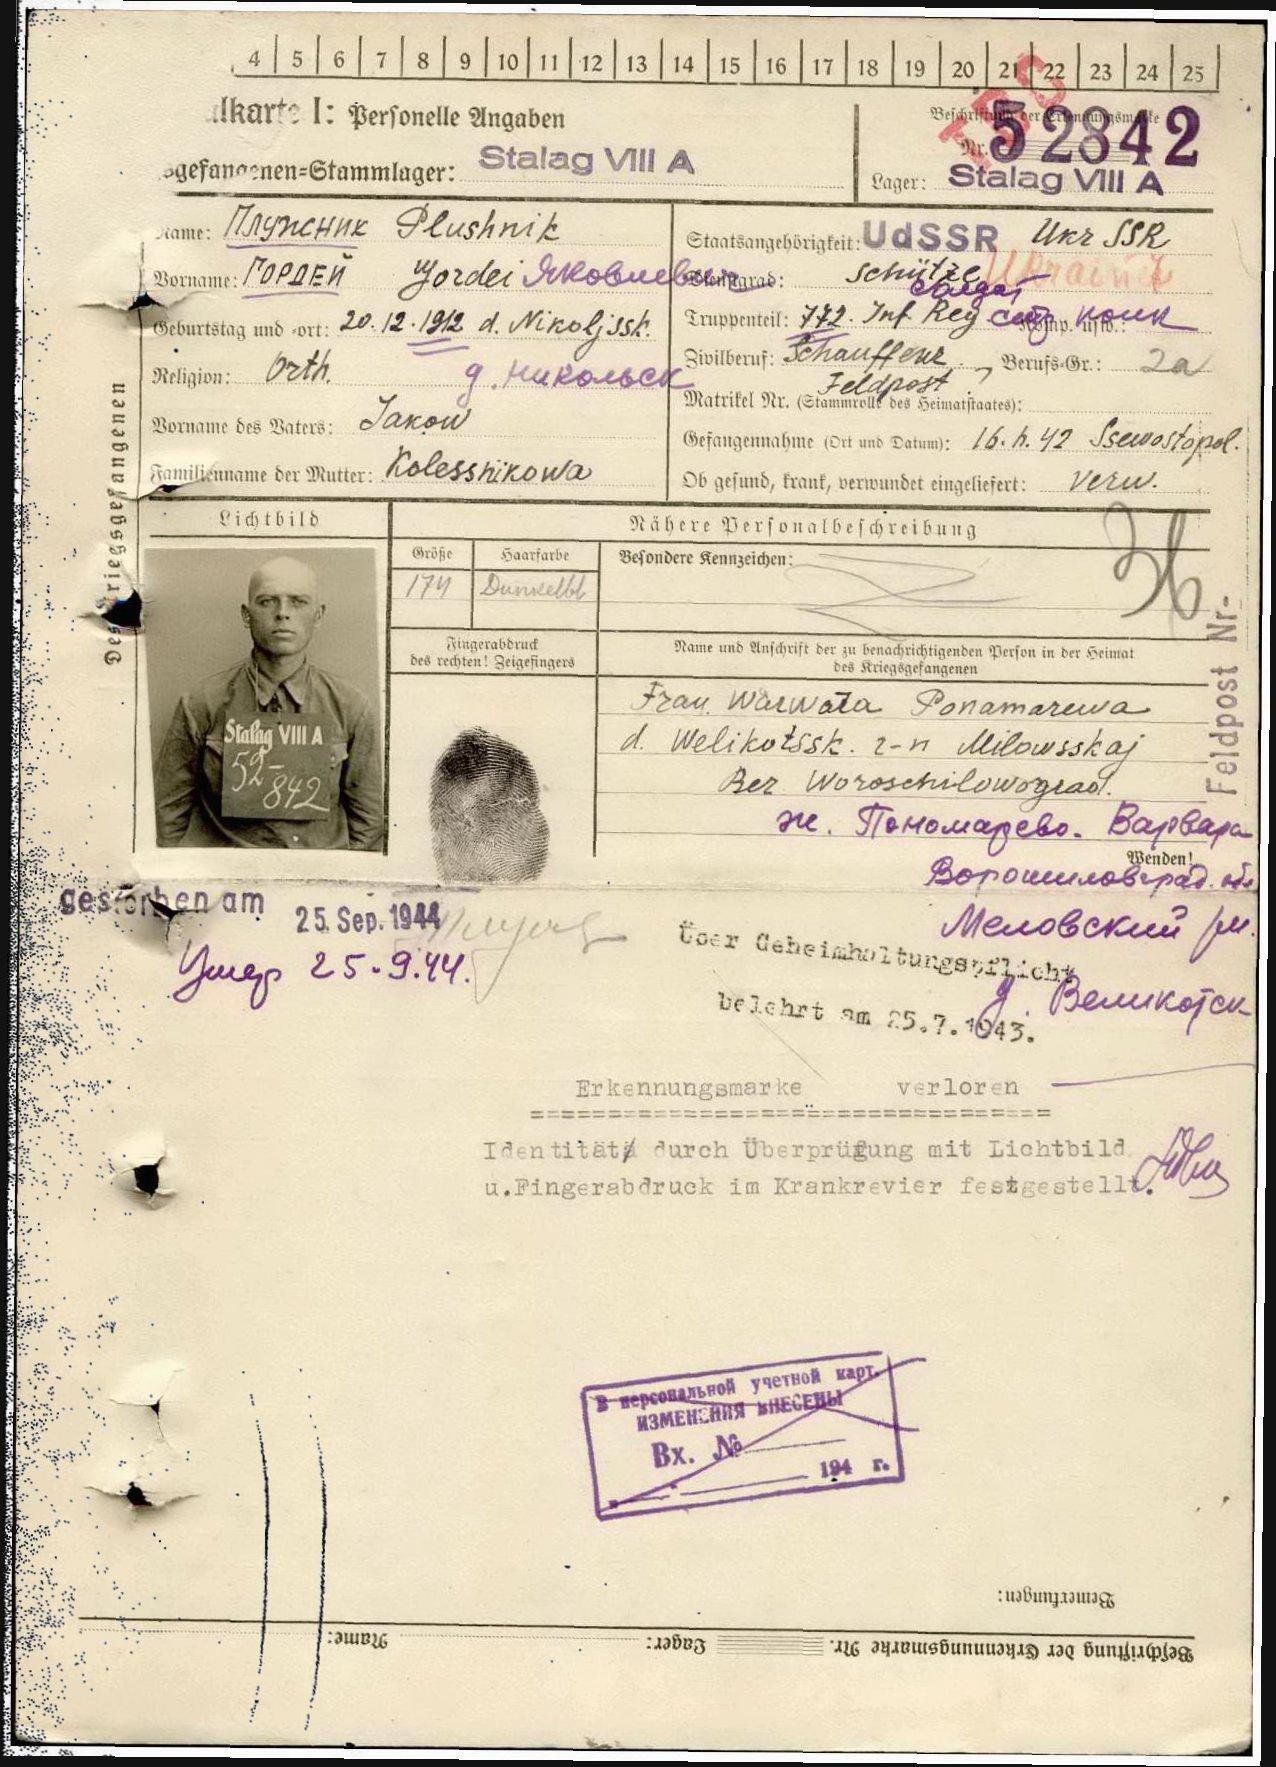 4 5 6 7 8 9 10 11 12 13 14 15 16 17 18 19 20 21 22 23 24 25
lkarte I: Personelle Angaben
Beschriftung der Erkennungsmarke
Nr. 52842
gefangenen-Stammlager: Stalag VIII A
Lager: Stalag VIII A
Name: Плужник Plushnik
Staatsangehörigkeit: UdSSR Ukr SSR
Vorname: ГОРДЕЙ Gordei Яковлевич
Dienstgrad: Schütze солдат Ukrainer
Geburtstag und -ort: 20.12.1912 d. Nikoljssk.
Truppenteil: 772. Inf Reg Komp. usw.:
Religion: Orth. д. Никольск
Zivilberuf: Schauffeur Berufs-Gr.: 2a
Feldpost
Matrikel Nr. (Stammrolle des Heimatstaates):
Vorname des Vaters: Jakow
Gefangennahme (Ort und Datum): 16.6.42 Ssewostopol.
Familienname der Mutter: Kolessnikowa
Ob gesund, krank, verwundet eingeliefert: verw.
Des Kriegsgefangenen
Lichtbild
Nähere Personalbeschreibung
36
Größe Haarfarbe Besondere Kennzeichen:
174 Dunkelbl
Fingerabdruck
des rechten! Zeigefingers
Name und Anschrift der zu benachrichtigenden Person in der Heimat
des Kriegsgefangenen
Stalag VIII A
52-
842
Frau Warwara Ponamarewa
d. Welikotssk. r-n Milowsskaj
Bez Woroschilowograd.
Feldpost Nr.
ж. Пономарево. Варвара
Wenden!
Ворошиловград. обл
Меловский рн.
д. Великотск
gestorben am 25. Sep. 1944
Умер 25.9.44.
Über Geheimhaltungspflicht
belehrt am 25.7.1943.
Erkennungsmarke verloren
==================================
Identität durch Überprüfung mit Lichtbild
u.Fingerabdruck im Krankrevier festgestellt.
В персональной учетной карт.
ИЗМЕНЕНИЯ ВНЕСЕНЫ
Вх. №
194 г.
Bemerkungen:
Beschriftung der Erkennungsmarke Nr. Lager: Name: